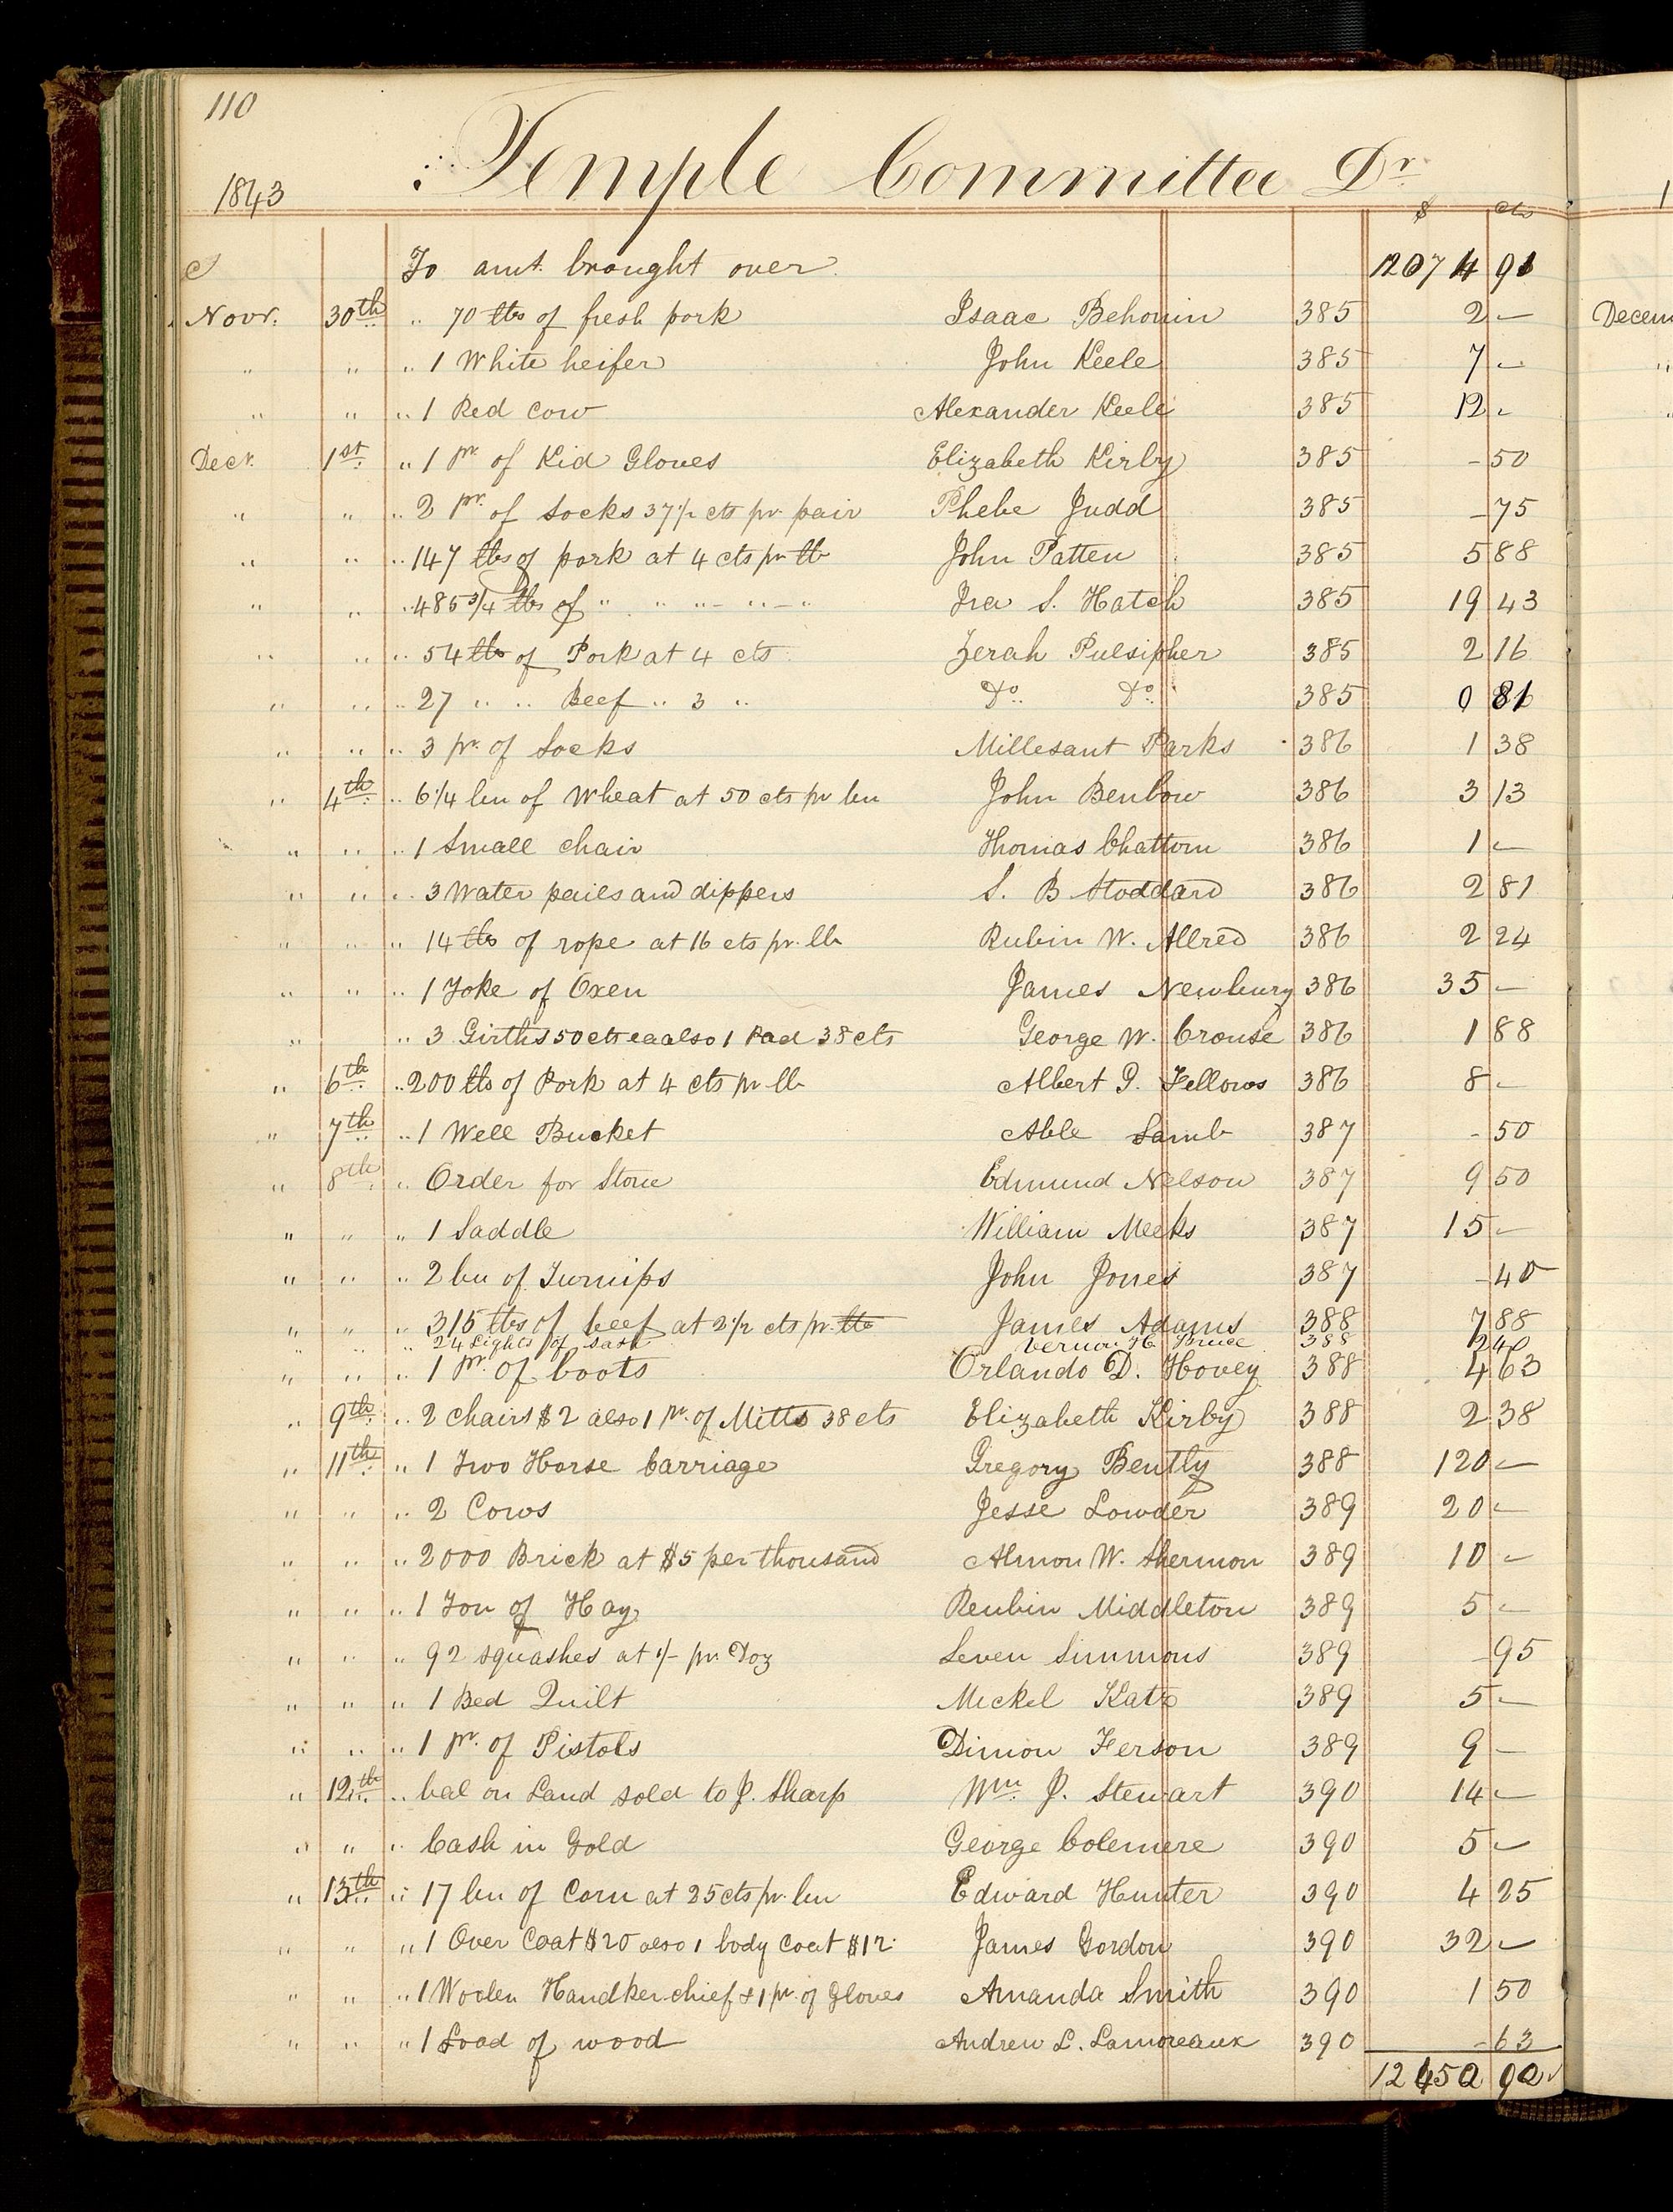 110
Temple Committee Dr
1843
$ cts
To amt. brought over 12074 91
Novr. 30th " 70 lbs of fresh pork Isaac Behonin 385 2 —
" " " 1 White heifer John Keele 385 7 —
" " " 1 Red Cow Alexander Keele 385 12 -
Decr. 1st " 1 pr. of Kid Gloves Elizabeth Kirby 385 - 50
" " " 2 Pr. of Socks 37 1/2 cts pr. pair Phebe Judd 385 - 75
" " " 147 lbs of pork at 4 cts pr lb John Patten 385 5 88
" " " 485 3/4 lbs of " " " " " Ira S. Hatch 385 19 43
" " " 54 lbs of Pork at 4 cts Zerah Pulsipher 385 2 16
" " " 27 " " Beef " 3 " Do. Do. 385 0 81
" " " 3 pr. of Socks Millesant Parks 386 1 38
" 4th " 6 1/4 bu of Wheat at 50 cts pr bu John Benbow 386 3 13
" " " 1 Small chair Thomas Chattom 386 1 —
" " " 3 Water pails and dippers S. B Stoddard 386 2 81
" " " 14 lbs of rope at 16 cts pr. lb Rubin W. Allred 386 2 24
" " " 1 Yoke of Oxen James Newbury 386 35 —
" " 3 Girths 50 cts ea also 1 Pad 38 cts George W. Crouse 386 1 88
" 6th " 200 lbs of Pork at 4 cts pr lb Albert P. Fellows 386 8 -
" 7th " 1 Well Bucket Able Lamb 387 - 50
" 8th " Order for Stone Edmund Nelson 387 9 50
" " " 1 Saddle William Meeks 387 15 -
" " " 2 bu of Turnips John Jones 387 - 40
" " " 315 lbs of beef at 2 1/2 cts pr. lb James Adams 388 7 88
" " " 24 Lights of Sash H. Bruce 388
" " " 1 Pr. of boots Orlando D. Hovey 388 4 63
" 9th " 2 Chairs $2 also 1 pr. of Mitts 38 cts Elizabeth Kirby 388 2 38
" 11th " 1 Two Horse Carriage Gregory Bently 388 120 —
" " " 2 Cows Jesse Lowder 389 20 —
" " " 2000 Brick at $5 per thousand Almon W. Shermon 389 10 -
" " " 1 Ton of Hay Reubin Middleton 389 5 -
" " " 92 squashes at 1/- pr. Doz Leven Simmons 389 - 95
" " " 1 Bed Quilt Mickel Katz 389 5 —
" " " 1 pr. of Pistols Dimon Ferson 389 9 —
" 12th " bal on Land sold to J. Sharp Wm. J. Stewart 390 14 —
" " " Cash in Gold George Colemere 390 5 -
" 13th " 17 bu of Corn at 25 cts pr. bu Edward Hunter 390 4 25
" " " 1 Over Coat $20 also 1 body Coat $12 James Gordon 390 32 -
" " " 1 Woolen Handkerchief & 1 pr. of Gloves Amanda Smith 390 1 50
" " " 1 Load of wood Andrew L. Lamoreaux 390 - 63
12450 92
Decem